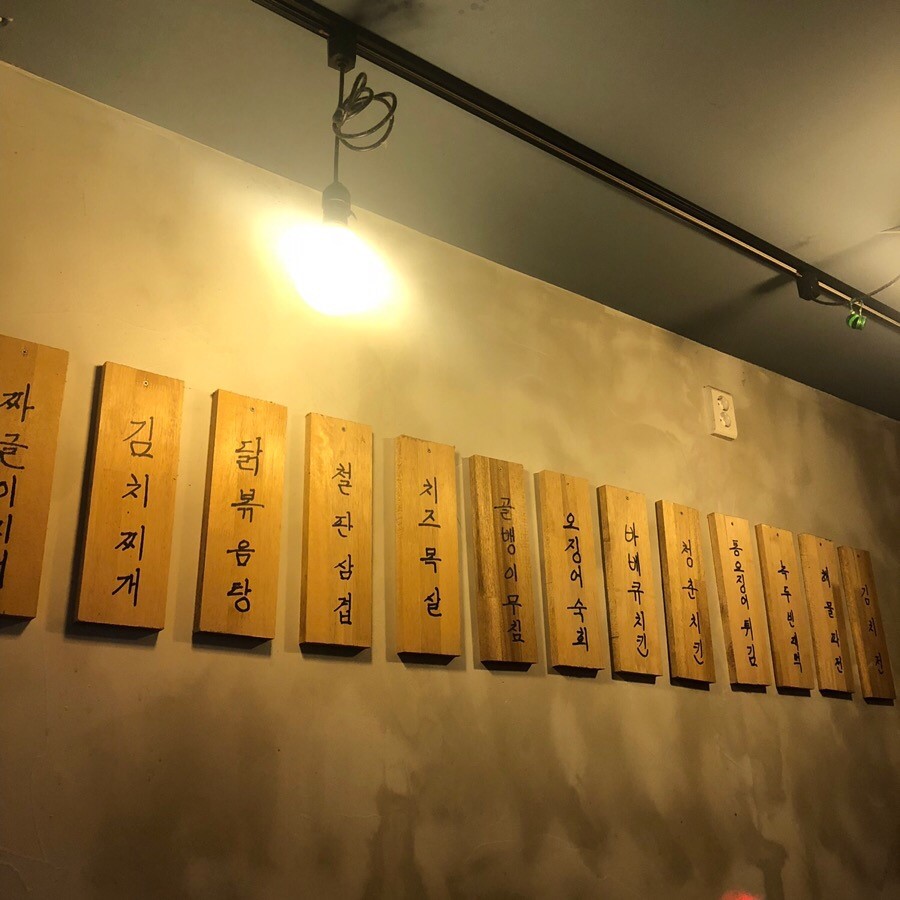 짜글이찌개
김치찌개
닭볶음탕
철판삼겹
치즈목살
골뱅이무침
오징어숙회
바베큐치킨
청춘치킨
통오징어튀김
녹두빈대떡
해물파전
김치전